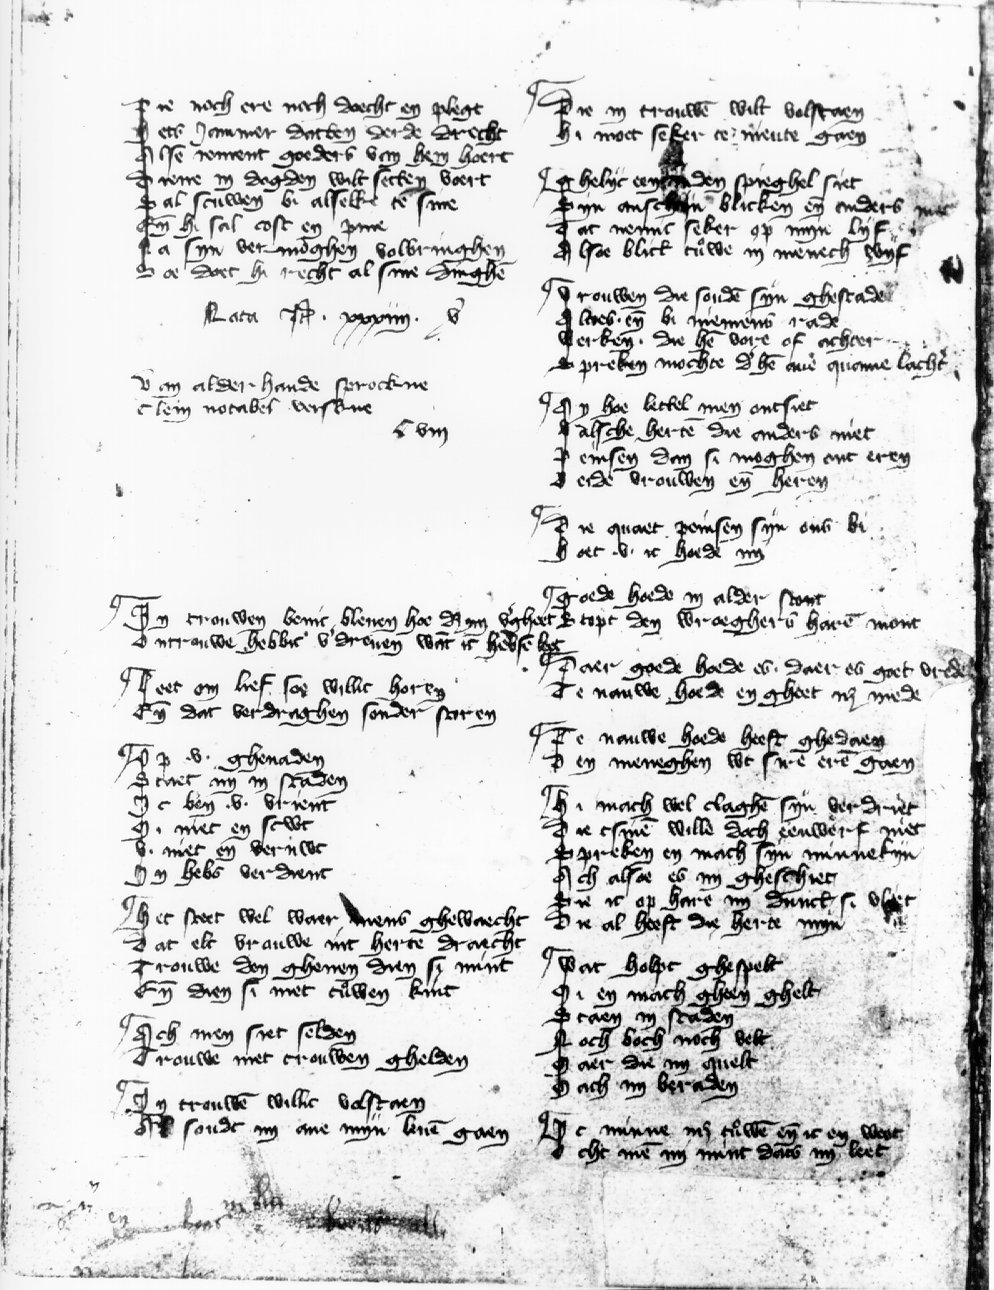 Die noch ere noch doecht en plegt
Hets jammer datten derde drecht
Alse iement goeders van hem hoert
Diene in dogden wilt setten voert
Sal scuwen bi alselke te sine
Eñ hi sal cost en pine
Na syn vermoghen volbringhen
Soe doet hi recht al sine dinghē
Nata xxxiiij. v
Van alderhande sprockine
Clein notabel verskine
C viij
In trouwen benic bleuen hoe
Ontrouwe hebbic v'dreuen want ic
Leet om lief soe willic horen
Eñ dat verdraghen sonder
Op .v. ghenaden
Staet mi in staden
Ic ben .v. vrient
Mi niet en scuwt
V. niet en vernuwt
In hebs verdient
Het steet wel waer mens ghewaecht
Dat elc vrouwe int herte draecht
Trouwe den ghenen dien si mint
Eñ dien si met kint
Ach men siet selden
Trouwe met trouwen ghelden
In trouwē willic volstaen
soudt mi ane mijn gaen
Die in trouwē wilt volstaen
Hi moet seker te gaen
Ghelijc een den spieghel siet
Sijn blicken eñ anders niet
Dat nemic seker op mijn lijf
Alsoe blict in menech wijf
Vrouwen die soudē sijn ghestade
Altoes eñ bi niemens rade
Merken die hē vore of achter
Spreken mochte hē quame lacht'
Ay hoe lettel men ontsiet
Valsche hertē die anders niet
Peinsen dan si moghen ont eren
Beide vrouwen eñ heren
Die quaet peinsen sijn ons bi
Hoet .v. ic hoede mi
Goede hoede in alder stont
Stopt den wroeghers harē mont
Daer goede hoede es daer es goet vrede
Te nauwe hoede en gheet mede
Te nauwe hoede heeft ghedaen
Den meneghen wt sire erē gaen
Hi mach wel claghē sijn verdriet
Die tsinē wille doch eenwerf niet
Spreken en mach sijn minnekijn
Ach alsoe es mi ghesciet
Die ic op hare mi dunct si vliet
Die al heeft die herte mijn
Wat holpt ghespelt
Mi en mach gheen ghelt
Staen in staden
Noch boch noch velt
Maer die mi quelt
Mach mi beraden
Ic minne eñ ic en weet
Ocht mē mi mint dats mi leet